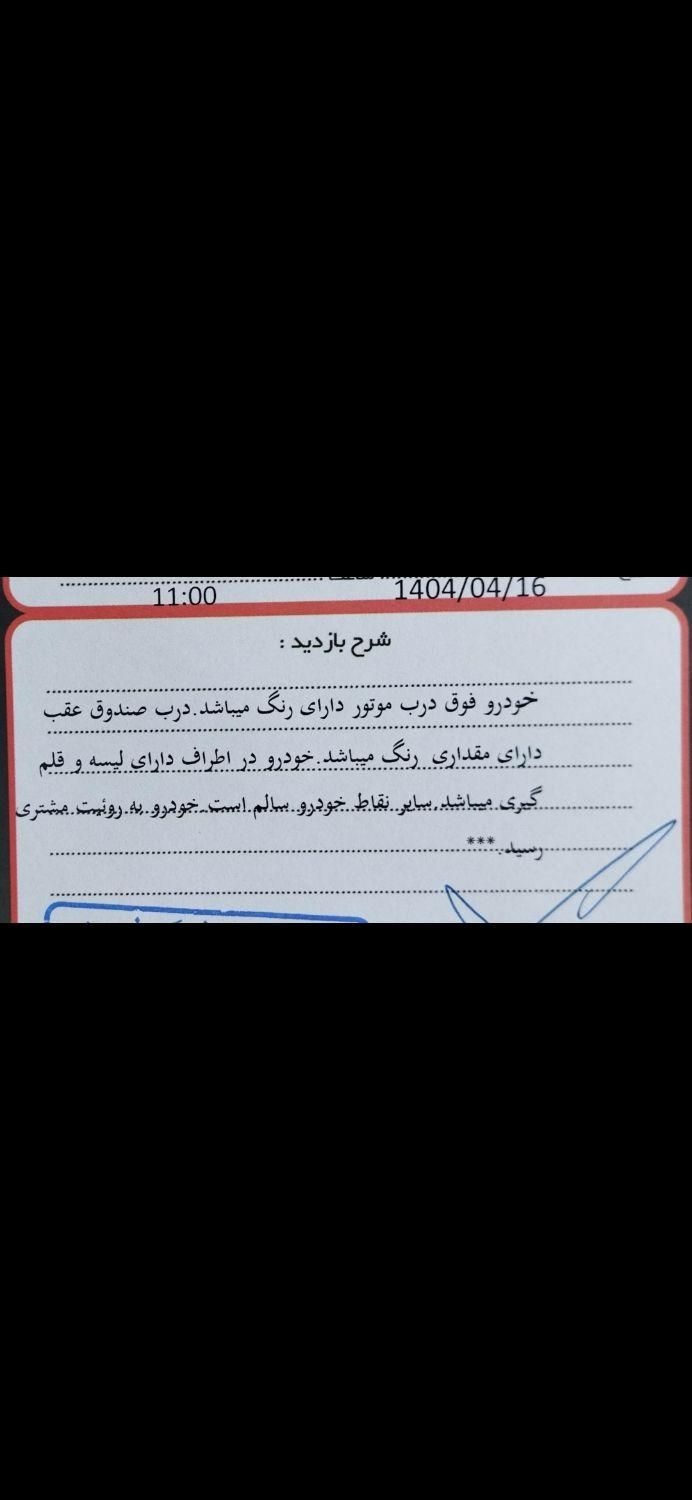 11:00 1404/04/16
شرح بازدید :
خودرو فوق درب موتور دارای رنگ میباشد.درب صندوق عقب
دارای مقداری رنگ میباشد.خودرو در اطراف دارای لیسه و قلم
گیری میباشد.سایر نقاط خودرو سالم است.خودرو به روئیت مشتری
رسید.***